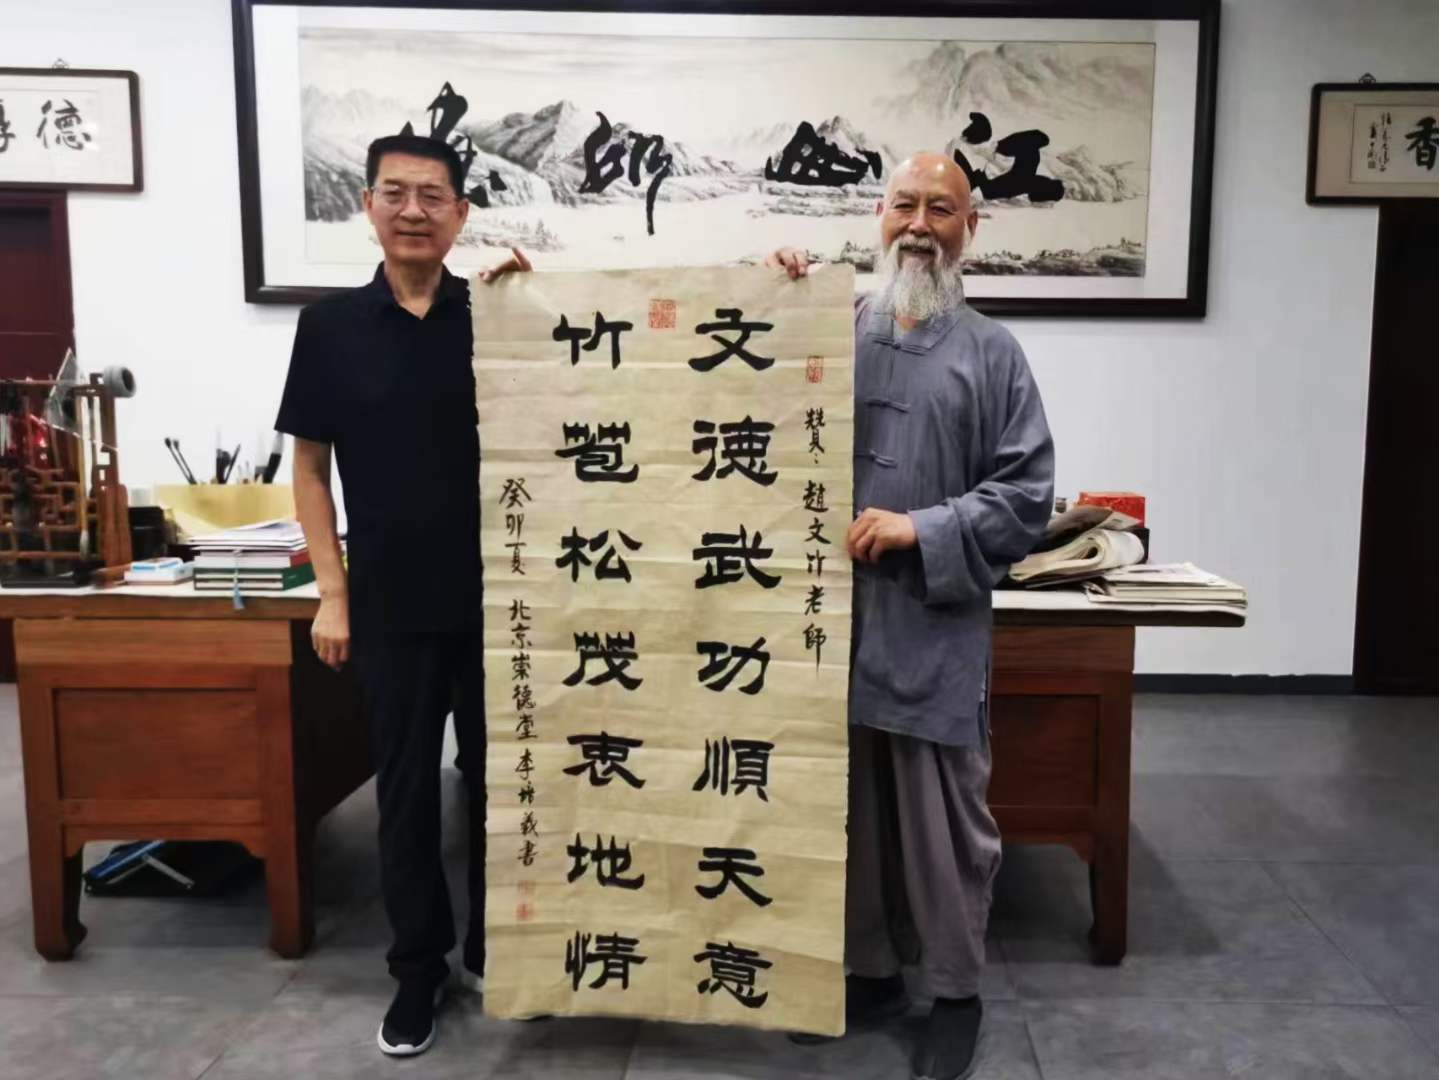 江山如畫
德
香
贊趙文竹老師
文德武功順天意
竹苞松茂衷地情
癸卯夏 北京崇德堂 李培義書